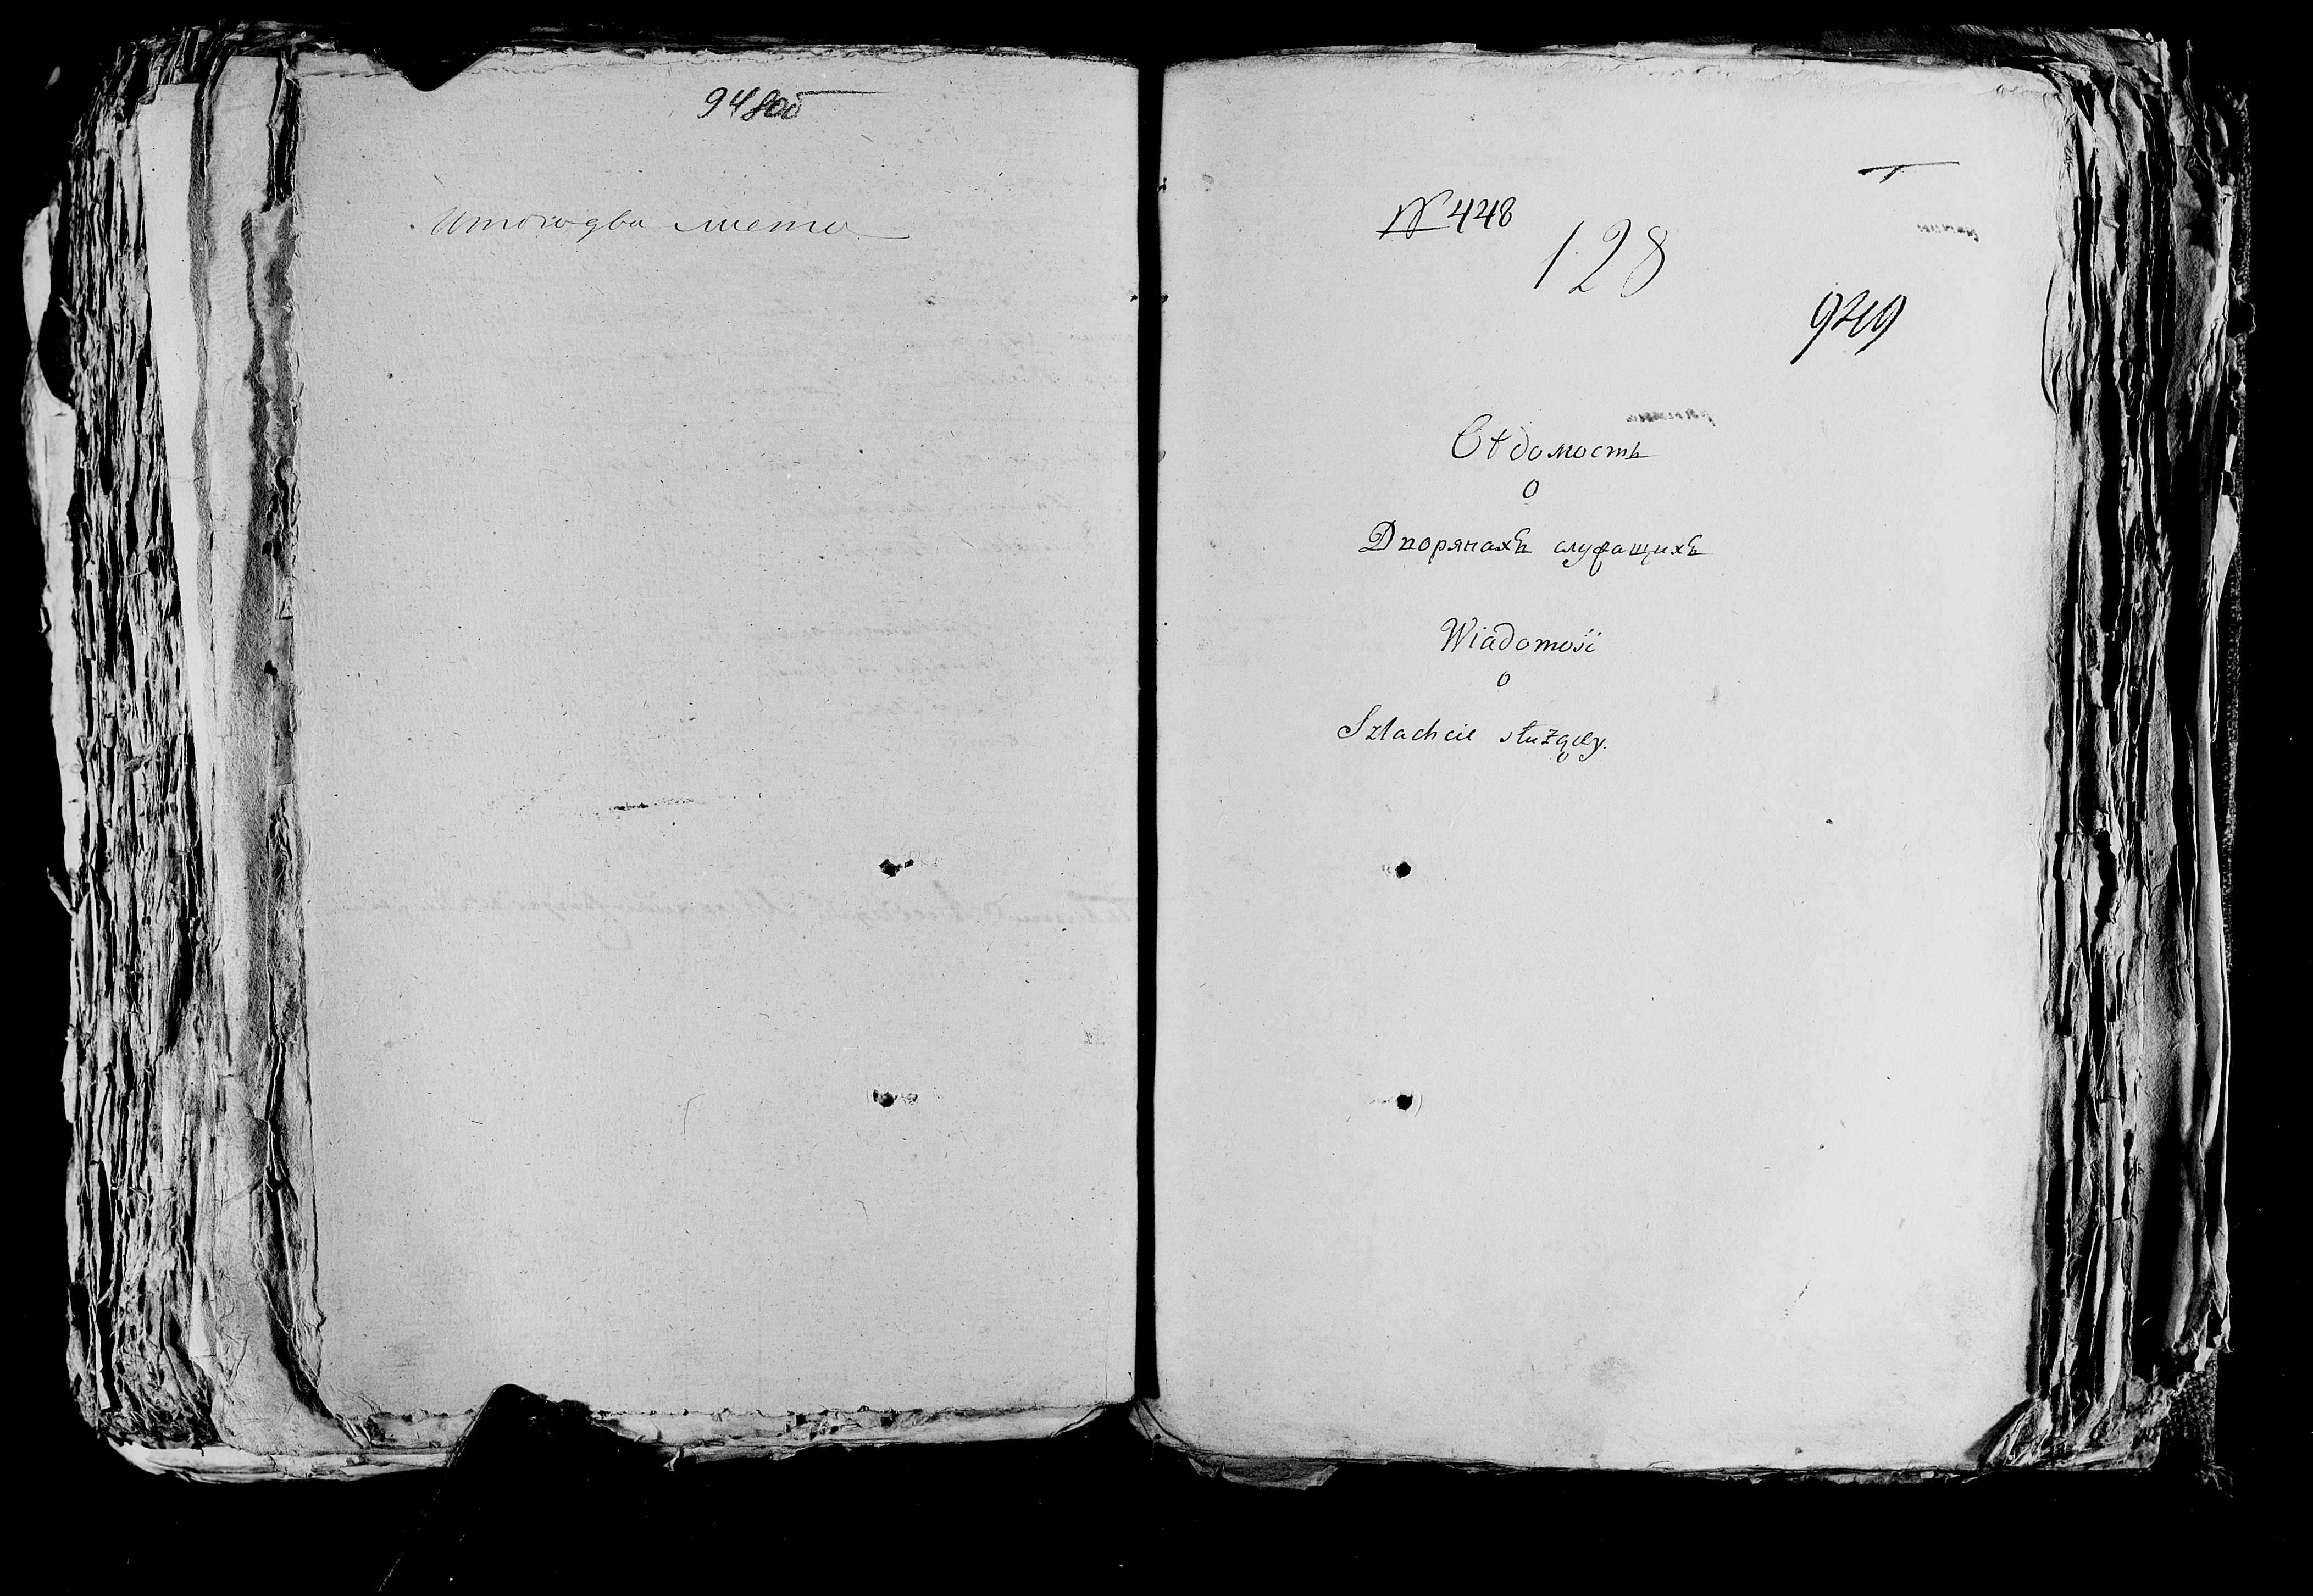 948об
Итого два листа
№ 448
128
949
Вѣдомость
о
Дворянахъ служащихъ
Wiadomość
o
Szlachcie służącey.